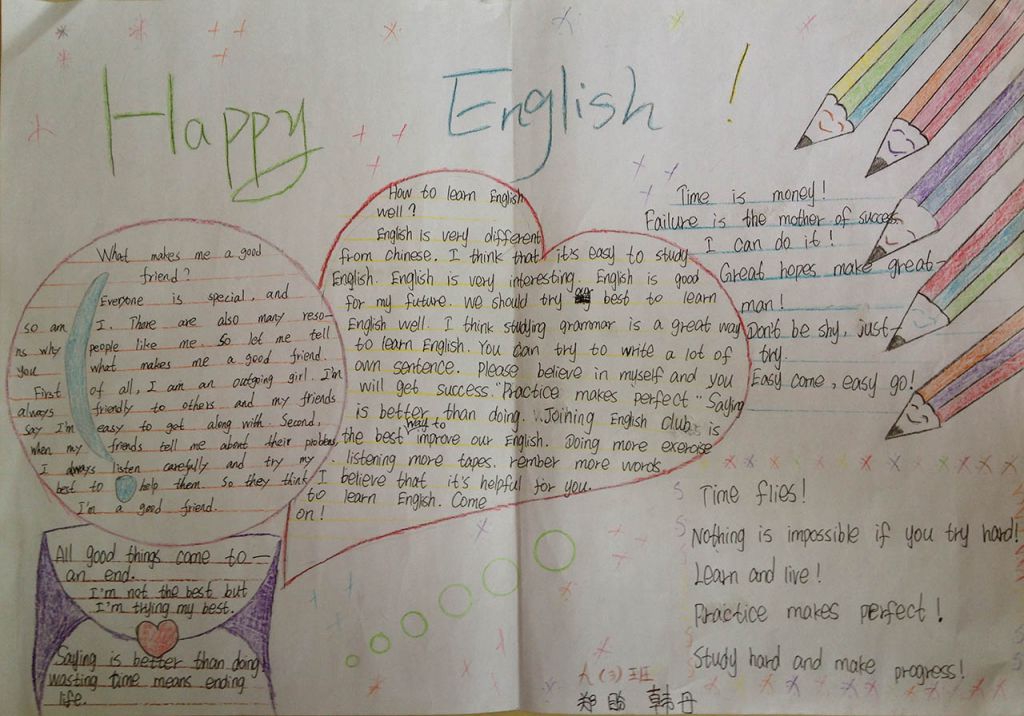 Happy English !
What makes me a good
friend?
Everyone is special, and
so am I. There are also many reso-
ns why people like me. So let me tell
you what makes me a good friend.
First of all, I am an outgoing girl. I'm
always friendly to others and my friends
say I'm easy to get along with. Second,
when my friends tell me about their problems
I always listen carefully and try my
best to help them. So they think
I'm a good friend.
All good things come to —
an end.
I'm not the best but
I'm trying my best.
Saying is better than doing
wasting time means ending
life.
How to learn English
well?
English is very different
from chinese. I think that it's easy to study
English. English is very interesting. English is good
for my future. We should try best to learn
English well. I think studying grammar is a great way
to learn English. You can try to write a lot of
own sentence. Please believe in myself and you
will get success. "Practice makes perfect" "Saying
is better than doing." Joining English club is
the best way to improve our English. Doing more exercise
listening more tapes. rember more words.
I believe that it's helpful for you.
to learn English. Come
on!
Time is money!
Failure is the mother of success
I can do it!
Great hopes make great—
man!
Don't be shy, just—
try.
Easy come, easy go!
Time flies!
Nothing is impossible if you try hard!
Learn and live!
Practice makes perfect!
Study hard and make progress!
(3)班
韩丹